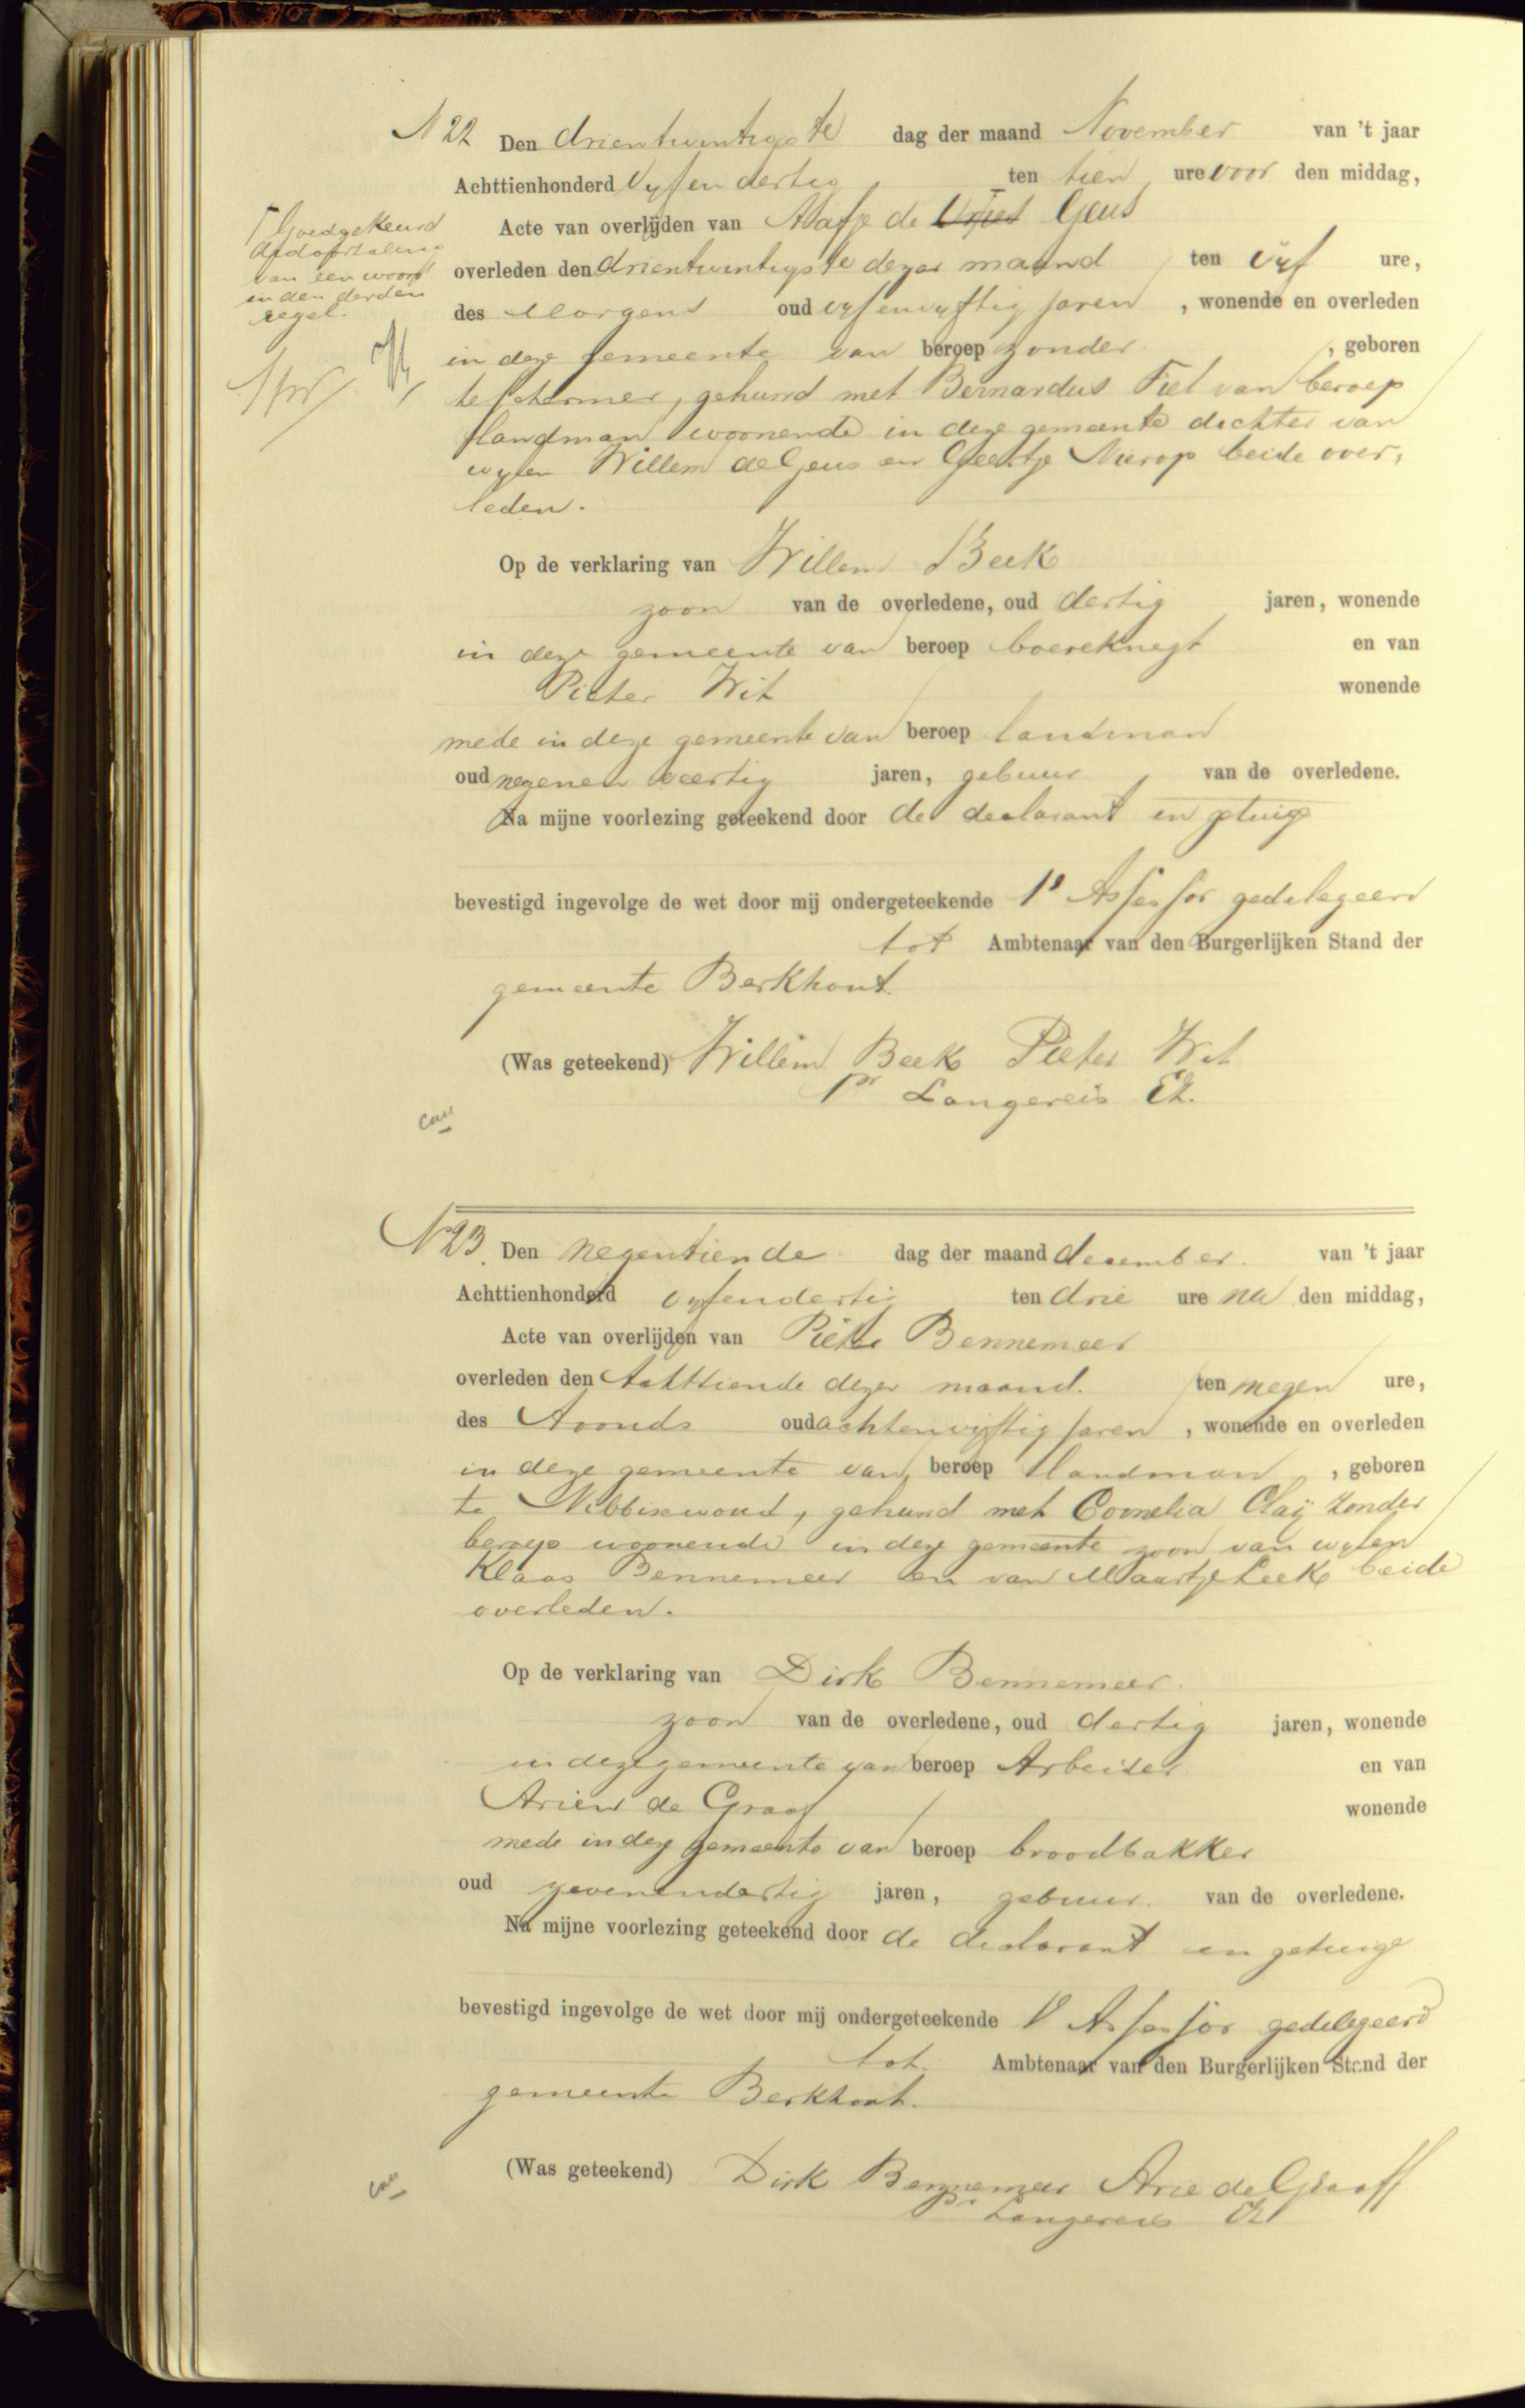 N 22 Den drientwintigste dag der maand November van 't jaar
Achttienhonderd Vyf en dertig ten tien ure voor den middag,
Acte van overlijden van de Geus
overleden den drientwintigste dezer maand ten vyf ure,
des Morgens oud vyfenvyftig jaren, wonende en overleden
in deze gemeente van beroep zonder, geboren
te Schermer, gehuwd met Bernardus Fiel van beroep
landman woonende in deze gemeente dochter van
wylen Willem de Geus en Geertje Nierop beide over,
leden.
Goedgekeurd
de doorhaling
van een woord
in den derden
regel.
Op de verklaring van Willem Beek
zoon van de overledene, oud dertig jaren, wonende
in deze gemeente van beroep boereknegt en van
Pieter Wit wonende
mede in deze gemeente van beroep landman
oud negenen veertig jaren, gebuur van de overledene.
Na mijne voorlezing geteekend door de declarant en getuige
bevestigd ingevolge de wet door mij ondergeteekende 1e Assessor gedelegeerd
tot Ambtenaar van den Burgerlijken Stand der
gemeente Berkhout
(Was geteekend) Willem Beek Pieter Wit
Pr Langereis Ez.
N 23. Den negentiende dag der maand december van 't jaar
Achttienhonderd vyfendertig ten drie ure na den middag,
Acte van overlijden van Pieter Bennemeer
overleden den Achttiende dezer maand. ten negen ure,
des Avonds oud achtenvyftig jaren, wonende en overleden
in deze gemeente van beroep landman, geboren
te Nibbixwoud, gehuwd met Cornelia Claij zonder
beroep woonende in deze gemeente zoon van wylen
Klaas Bennemeer en van Maartje Leek beide
overleden.
Op de verklaring van Dirk Bennemeer.
zoon van de overledene, oud dertig jaren, wonende
in deze gemeente van beroep Arbeider en van
Ariew de Graaf wonende
mede in deze gemeente van beroep broodbakker
oud zevenendertig jaren, gebuur. van de overledene.
Na mijne voorlezing geteekend door de declarant en getuige
bevestigd ingevolge de wet door mij ondergeteekende 1e Assessor gedelegeerd
tot. Ambtenaar van den Burgerlijken Stand der
gemeente Berkhout.
(Was geteekend) Dirk Bennemeer Arie de Graaff
Pr Langereis Ez